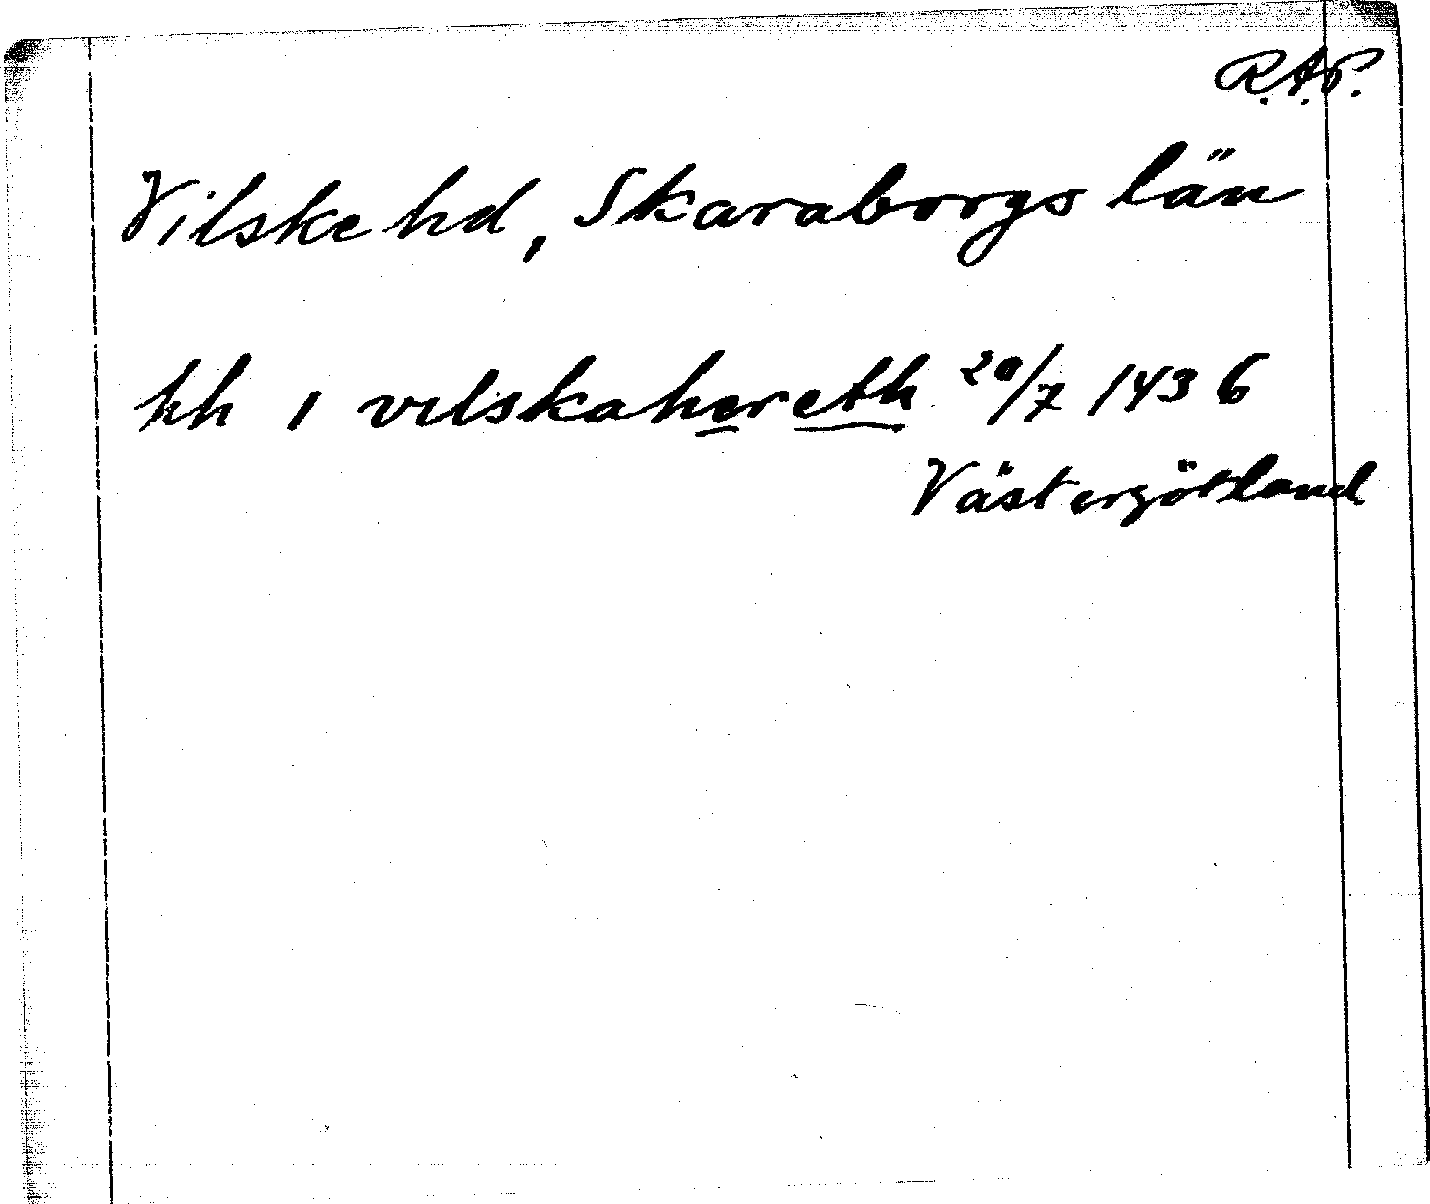 R.A.P.
Vilske hd, Skaraborgs län
hh ı vılskahereth 20/7 1436
Västergötland